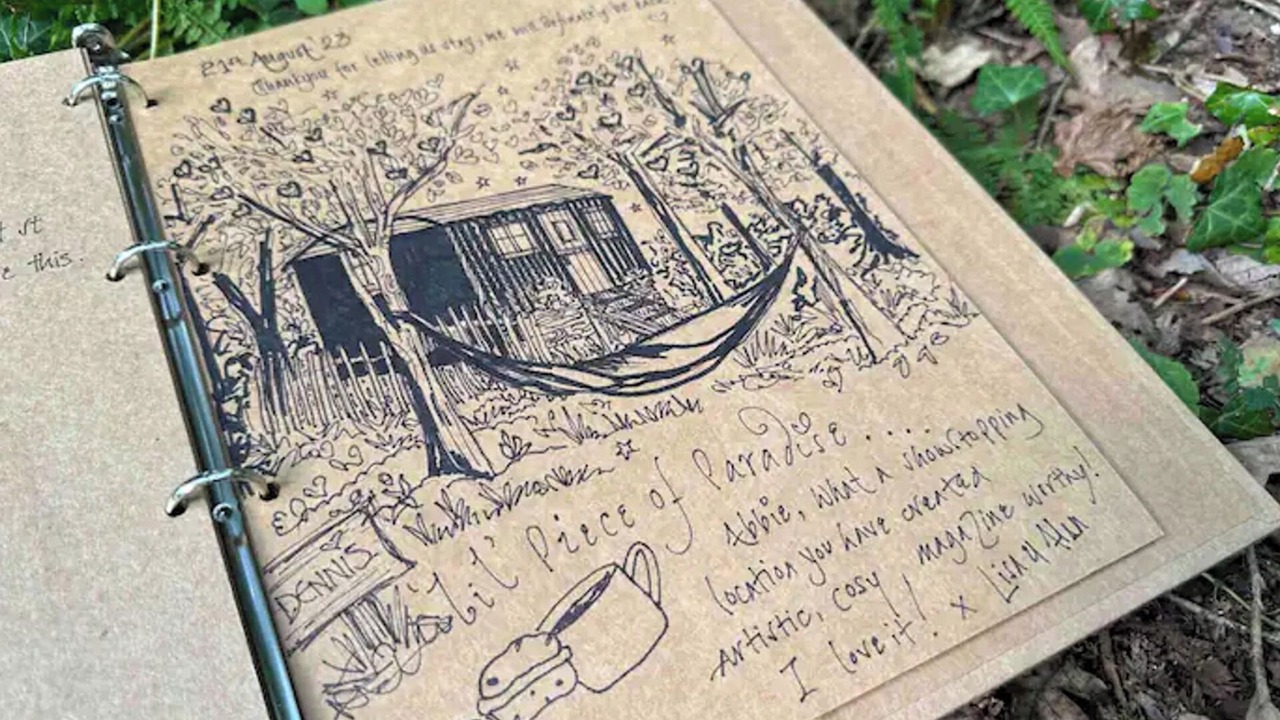 st
e this.
21st August '23
Thankyou for letting us stay, we will definately be back
DENNIS
'Lil' Piece of Paradise....
Abbie, what a showstopping
location you have created
Artistic, cosy, magazine worthy!
I love it! x Lisa & Alan